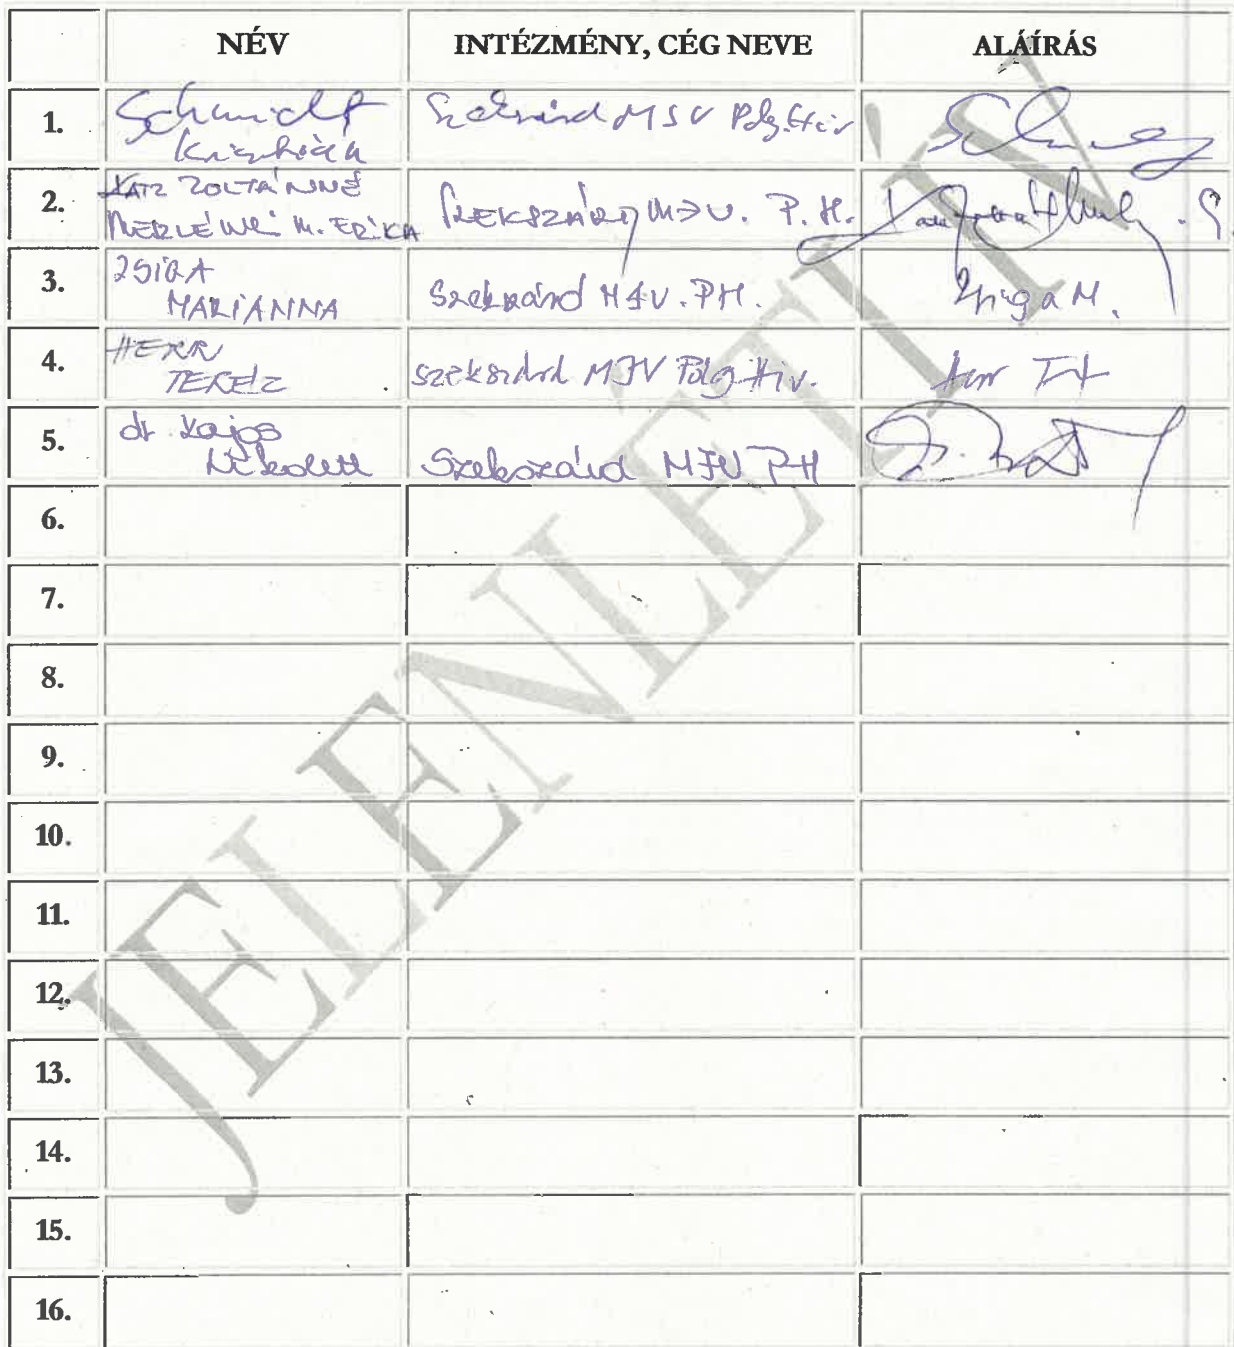 NÉV INTÉZMÉNY, CÉG NEVE ALÁÍRÁS
1. Schmidt Szekszárd MJV Polg. Hiv
Krisztián
2. KATZ ZOLTÁNNÉ
M. ERIKA SZEKSZÁRD MJV. P. H.
3. ZSIGA
MARIANNA Szekszárd MJV. PH. Zsiga M.
4. HERR
TERÉZ Szekszárd MJV Polg. Hiv.
5. dr Kajos
Nikolett Szekszárd MJV PH
6.
7.
8.
9.
10.
11.
12.
13.
14.
15.
16.
JELENLÉTI ÍV